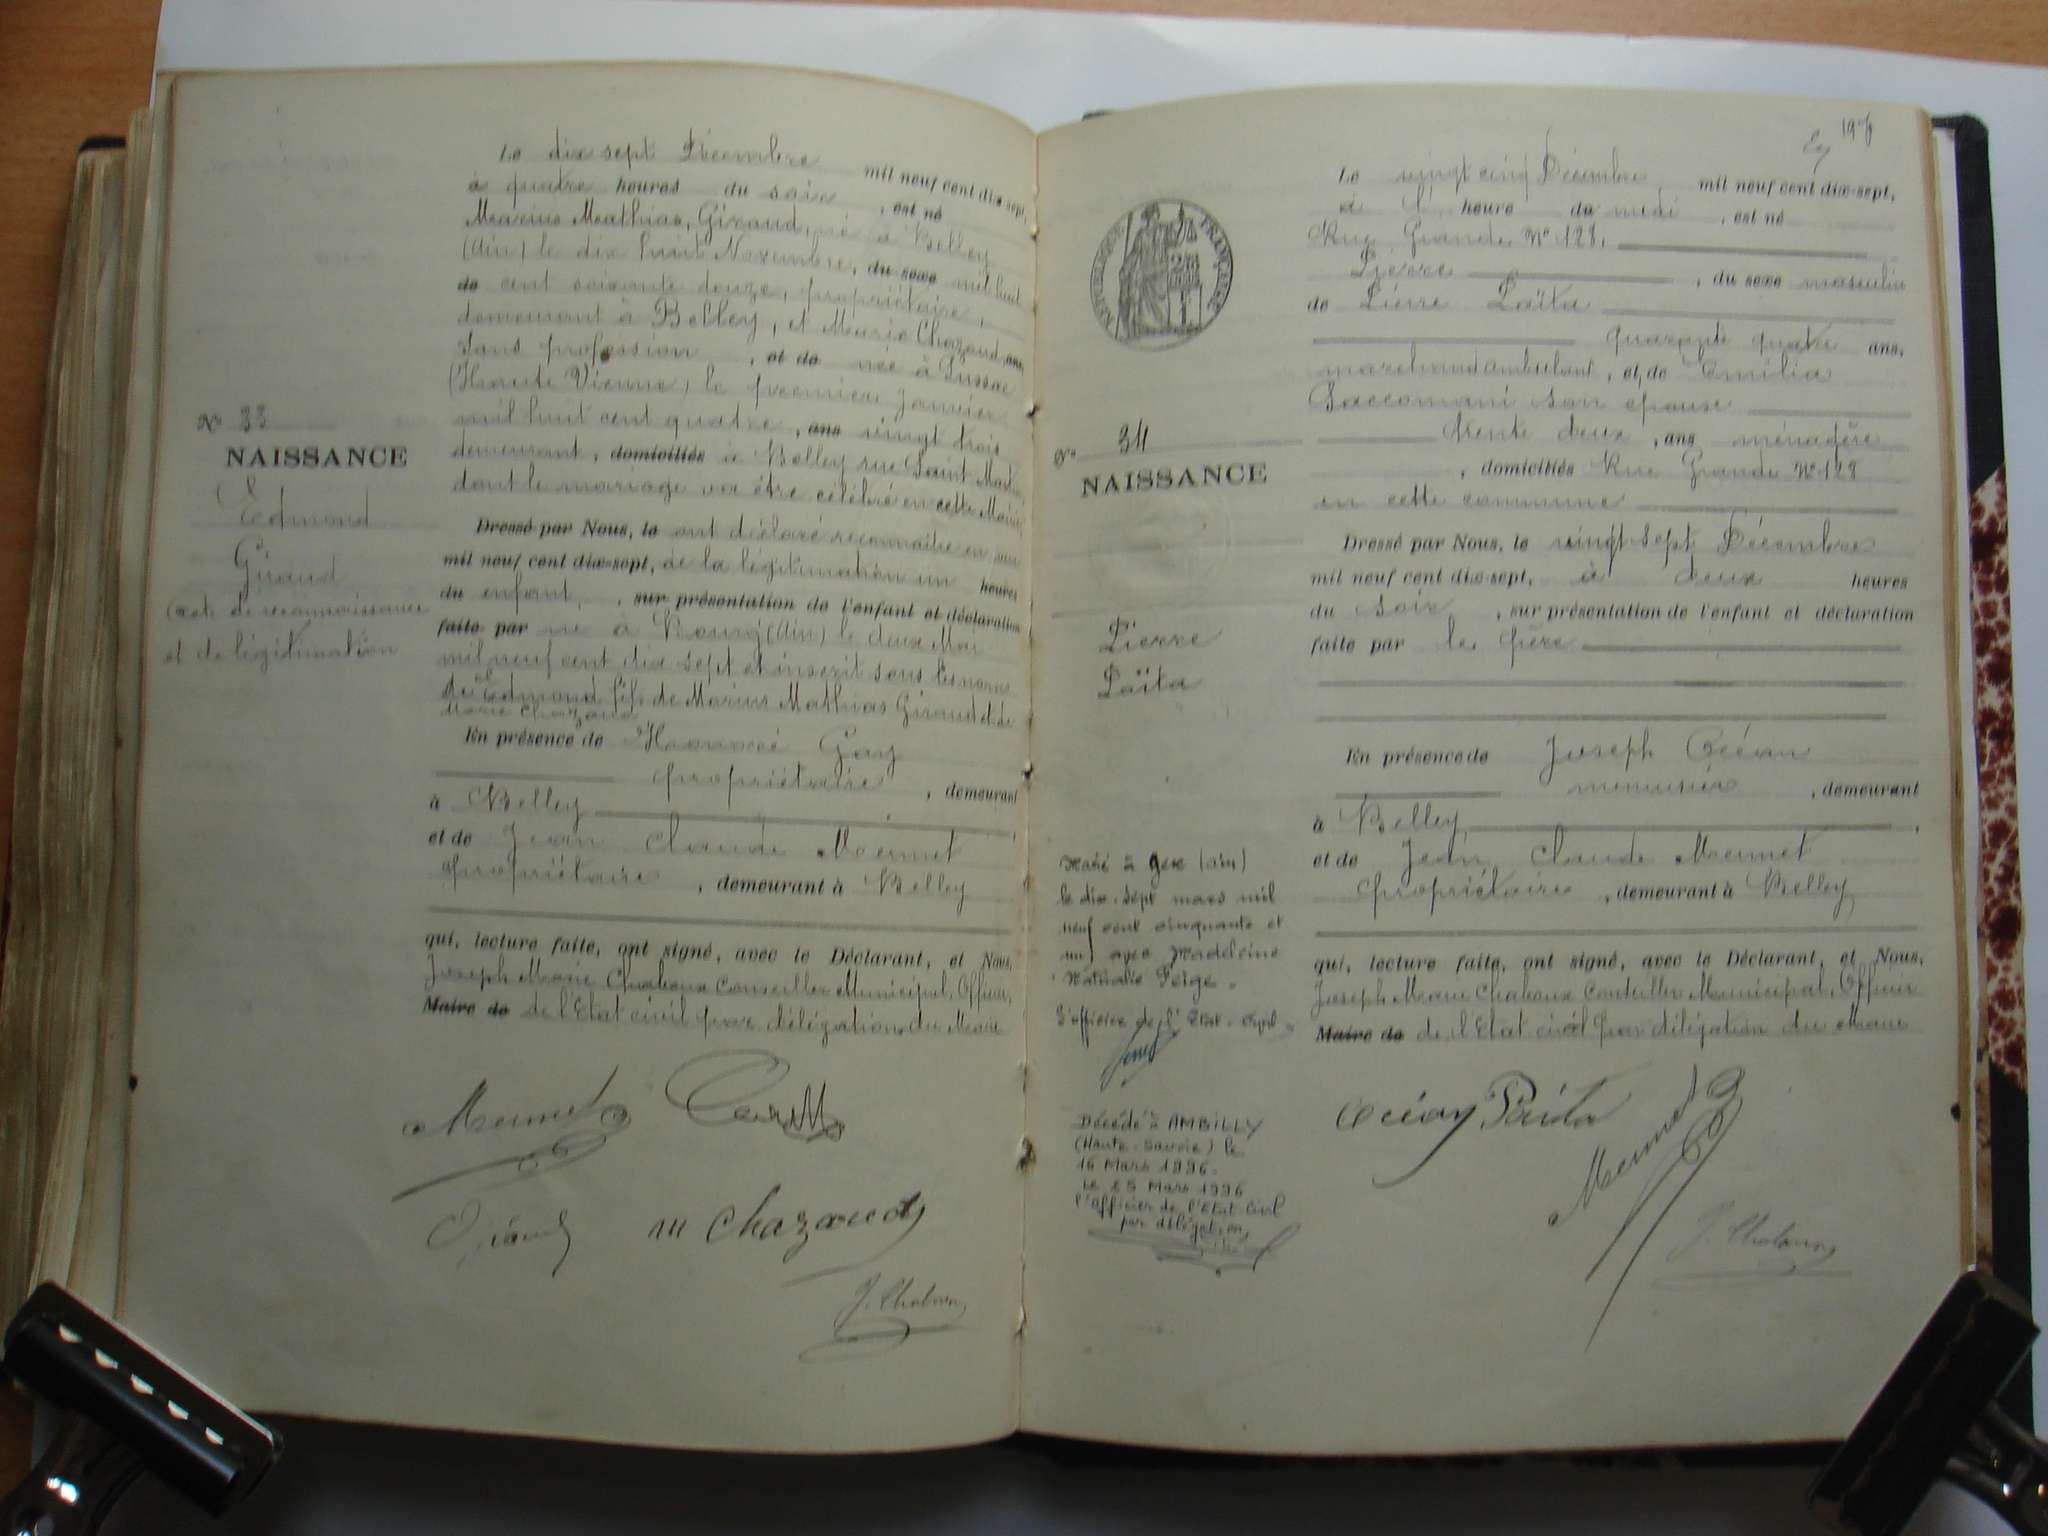 N° 33
NAISSANCE
Edmond
Giraud
(acte de reconnaissance
et de légitimation
Le dix sept Décembre mil neuf cent dix-sept,
à quatre heures du soir, est né
Marius Mathias, Giraud, né à Belley
(Ain) le dix huit Novembre, du sexe mil huit
de cent soixante douze, propriétaire,
demeurant à Belley, et Marie Chazaud ans,
sans profession, et de née à Lussac
(Haute Vienne) le premier janvier
mil huit cent quatre, ans vingt trois
demeurant, domiciliés à Belley rue Saint Martin
dont le mariage va être célébré en cette Mairie
Dressé par Nous, le ont déclaré reconnaître en vue
mil neuf cent dix-sept, de la légitimation un heures
du enfant, sur présentation de l'enfant et déclaration
faite par né à Bourg (Ain) le deux Mai
mil neuf cent dix sept et inscrit sous les noms
de Edmond fils de Marius Mathias Giraud et de
Marie Chazaud
En présence de Gay
propriétaire, demeurant
à Belley,
et de Jean Claude Mermet
propriétaire, demeurant à Belley
qui, lecture faite, ont signé, avec le Déclarant, et Nous,
Joseph Marie Chaboux Conseiller Municipal, Officier
Maire de de l'Etat civil par délégation du Maire
Mermet
Giraud M Chazaud
J. Chaboux
RÉPUBLIQUE FRANÇAISE
N° 34
NAISSANCE
Pierre
Païta
Marié à Gex (Ain)
le dix-sept mars mil
neuf cent cinquante et
un avec Madeleine
Nathalie Feige.
L'officier de l'Etat-Civil
Décédé à AMBILLY
(Haute-Savoie) le
16 Mars 1996.
Le 25 Mars 1996
l'officier de l'Etat Civil
par délégation,
Le vingt cinq Décembre, mil neuf cent dix-sept,
à l' heure du midi, est né
Rue Grande, N° 128,
Pierre, du sexe masculin
de Pierre Païta
quarante quatre ans,
marchand ambulant, et de Emilia
Saccomani son épouse
trente deux, ans ménagère
, domiciliés Rue Grande N° 128
en cette commune
Dressé par Nous, le vingt sept Décembre
mil neuf cent dix-sept, à deux heures
du soir, sur présentation de l'enfant et déclaration
faite par le père
En présence de Joseph Océan
menuisier, demeurant
à Belley,
et de Jean Claude Mermet
propriétaire, demeurant à Belley,
qui, lecture faite, ont signé, avec le Déclarant, et Nous,
Joseph Marie Chaboux Conseiller Municipal, Officier
Maire de de l'Etat civil par délégation du Maire
Océan Païta
Mermet
J. Chaboux